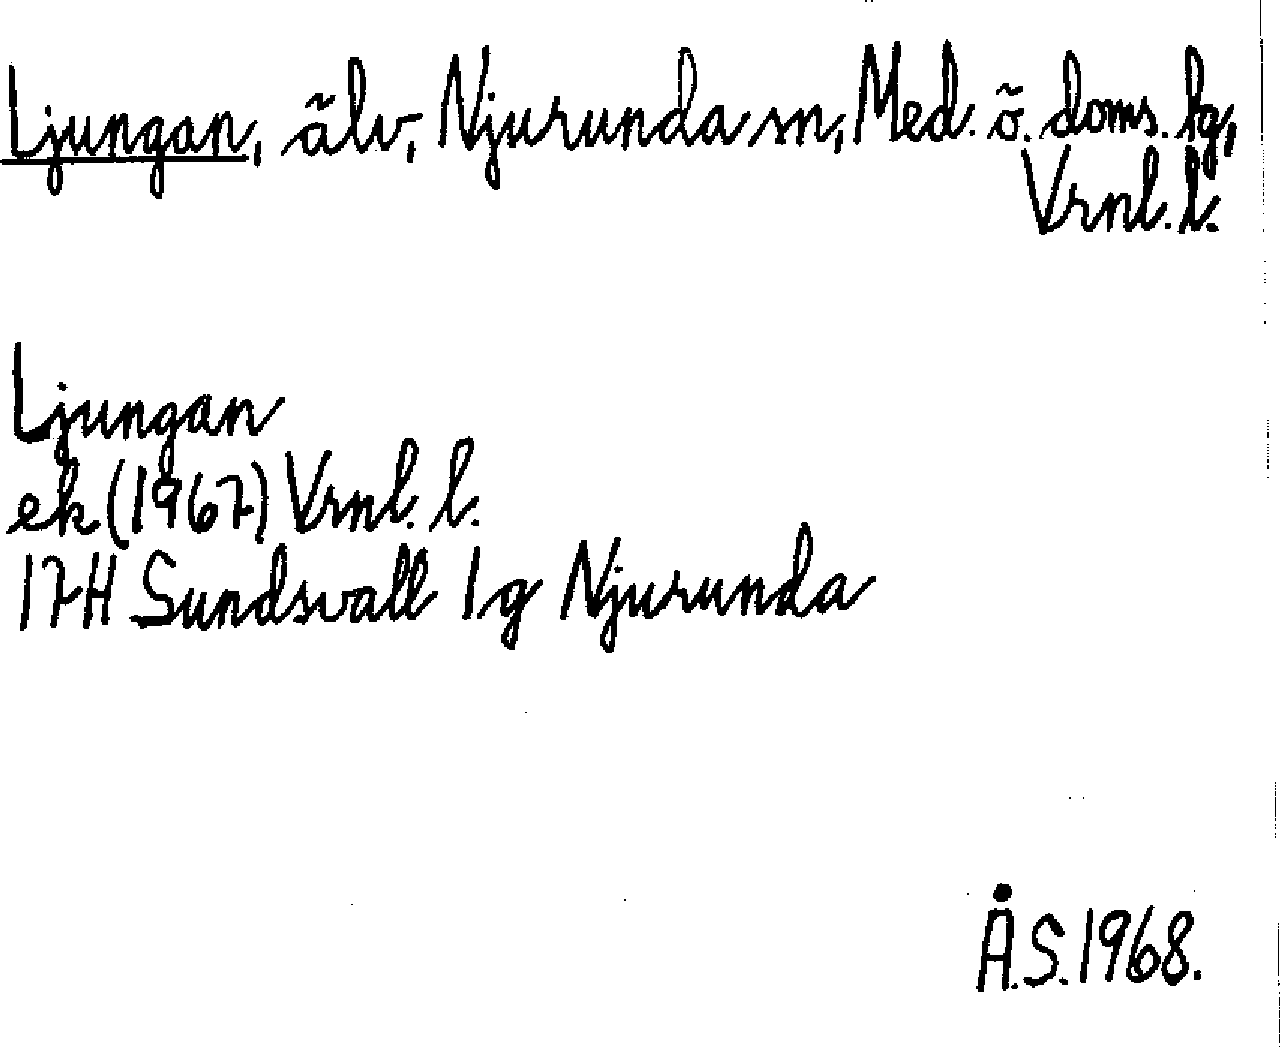 Ljungan, älv, Njurunda sn, Med. ö. doms. hg,
Vrnl. l.
Ljungan
ek (1967) Vrnl. l.
17H Sundsvall 1g Njurunda
Å.S. 1968.